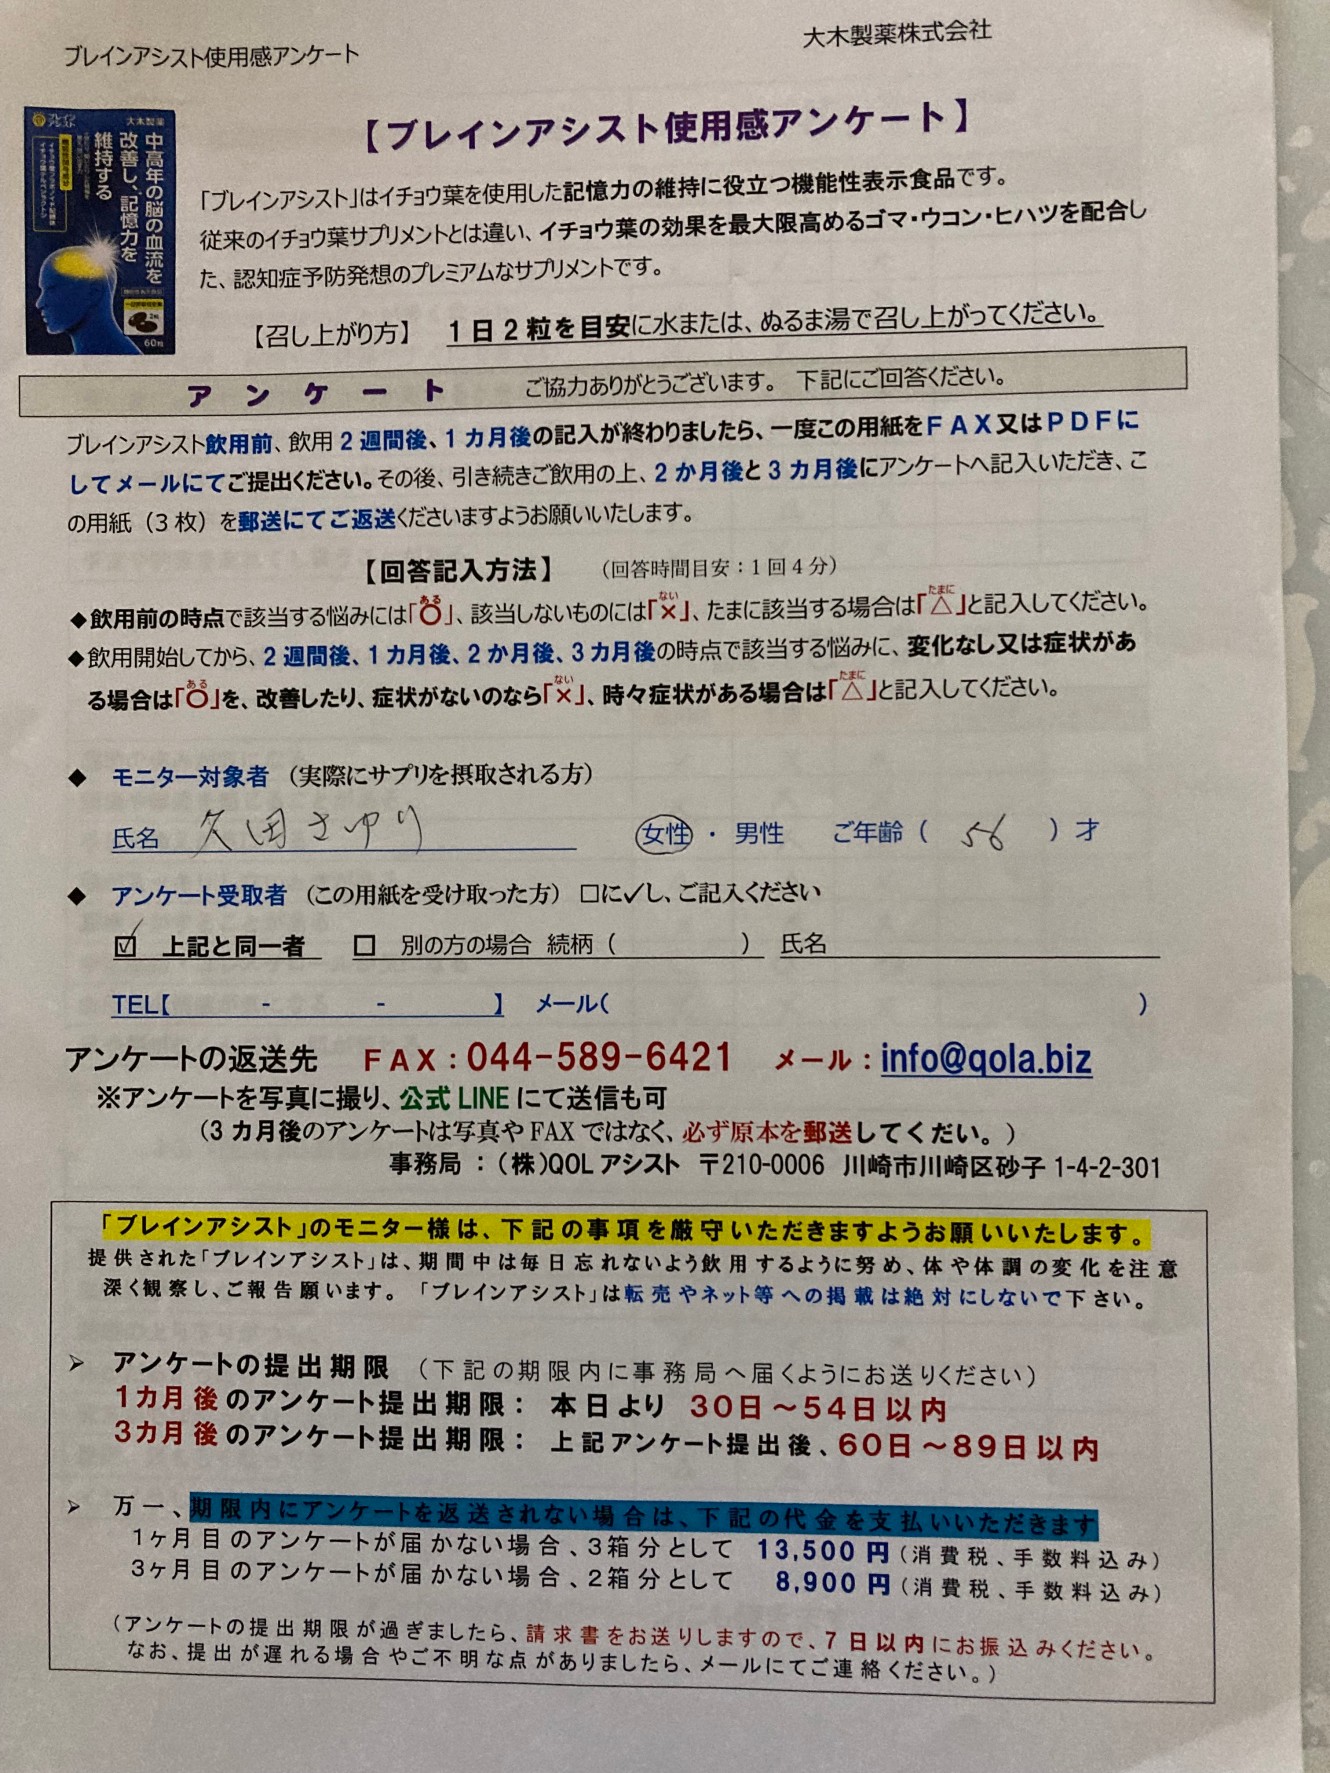 ブレインアシスト使用感アンケート
大木製薬株式会社
【ブレインアシスト使用感アンケート】
ブレインアシスト
大木製薬
中高年の脳の血流を
改善し、記憶力を
維持する
60粒
「ブレインアシスト」はイチョウ葉を使用した記憶力の維持に役立つ機能性表示食品です。
従来のイチョウ葉サプリメントとは違い、イチョウ葉の効果を最大限高めるゴマ・ウコン・ヒハツを配合し
た、認知症予防発想のプレミアムなサプリメントです。
【召し上がり方】 1日2粒を目安に水または、ぬるま湯で召し上がってください。
アンケート ご協力ありがとうございます。 下記にご回答ください。
ブレインアシスト飲用前、飲用2週間後、1カ月後の記入が終わりましたら、一度この用紙をFAX又はPDFに
してメールにてご提出ください。その後、引き続きご飲用の上、2か月後と3カ月後にアンケートへ記入いただき、こ
の用紙（3枚）を郵送にてご返送くださいますようお願いいたします。
【回答記入方法】 （回答時間目安：1回4分）
◆飲用前の時点で該当する悩みには「○ある」、該当しないものには「×ない」、たまに該当する場合は「△たまに」と記入してください。
◆飲用開始してから、2週間後、1カ月後、2か月後、3カ月後の時点で該当する悩みに、変化なし又は症状があ
る場合は「○ある」を、改善したり、症状がないのなら「×ない」、時々症状がある場合は「△たまに」と記入してください。
◆ モニター対象者 （実際にサプリを摂取される方）
氏名 久田さゆり 女性 ・ 男性 ご年齢（ 56 ）才
◆ アンケート受取者 （この用紙を受け取った方）□に✓し、ご記入ください
☑ 上記と同一者 □ 別の方の場合 続柄（ ） 氏名
TEL【 - - 】 メール（ ）
アンケートの返送先 FAX：044-589-6421 メール：info@qola.biz
※アンケートを写真に撮り、公式LINEにて送信も可
（3カ月後のアンケートは写真やFAXではなく、必ず原本を郵送してくだい。）
事務局：（株）QOLアシスト 〒210-0006 川崎市川崎区砂子1-4-2-301
「ブレインアシスト」のモニター様は、下記の事項を厳守いただきますようお願いいたします。
提供された「ブレインアシスト」は、期間中は毎日忘れないよう飲用するように努め、体や体調の変化を注意
深く観察し、ご報告願います。「ブレインアシスト」は転売やネット等への掲載は絶対にしないで下さい。
➢ アンケートの提出期限 （下記の期限内に事務局へ届くようにお送りください）
1カ月後のアンケート提出期限： 本日より 30日～54日以内
3カ月後のアンケート提出期限： 上記アンケート提出後、60日～89日以内
➢ 万一、期限内にアンケートを返送されない場合は、下記の代金を支払いいただきます
1ヶ月目のアンケートが届かない場合、3箱分として 13,500円（消費税、手数料込み）
3ヶ月目のアンケートが届かない場合、2箱分として 8,900円（消費税、手数料込み）
（アンケートの提出期限が過ぎましたら、請求書をお送りしますので、7日以内にお振込みください。
なお、提出が遅れる場合やご不明な点がありましたら、メールにてご連絡ください。）